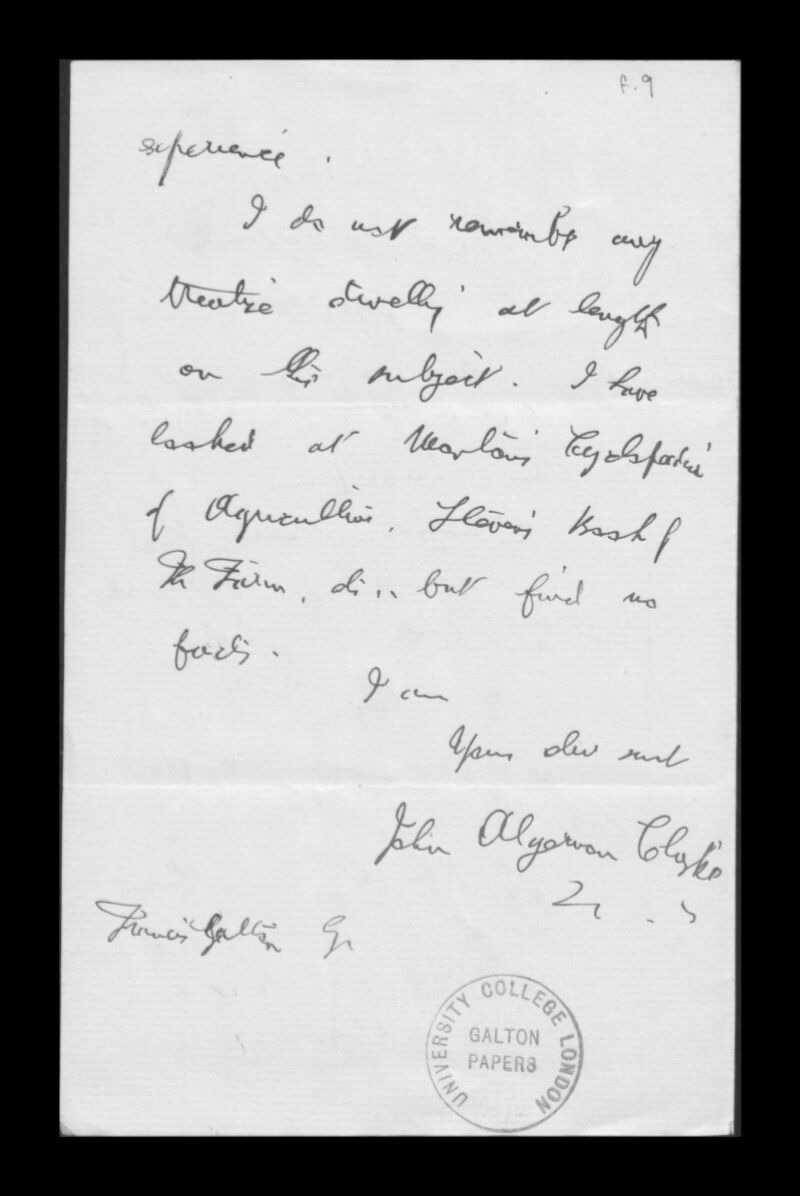 f.9
experience.
I do not remember any
treatise dwelling at length
on this subject. I have
looked at Morton's Cyclopaedia
of Agriculture, Stephens' Book of
the Farm, &c.. but find no
facts.
I am
Yours
John Algernon Clarke
Francis Galton Esq
UNIVERSITY COLLEGE LONDON
GALTON
PAPERS